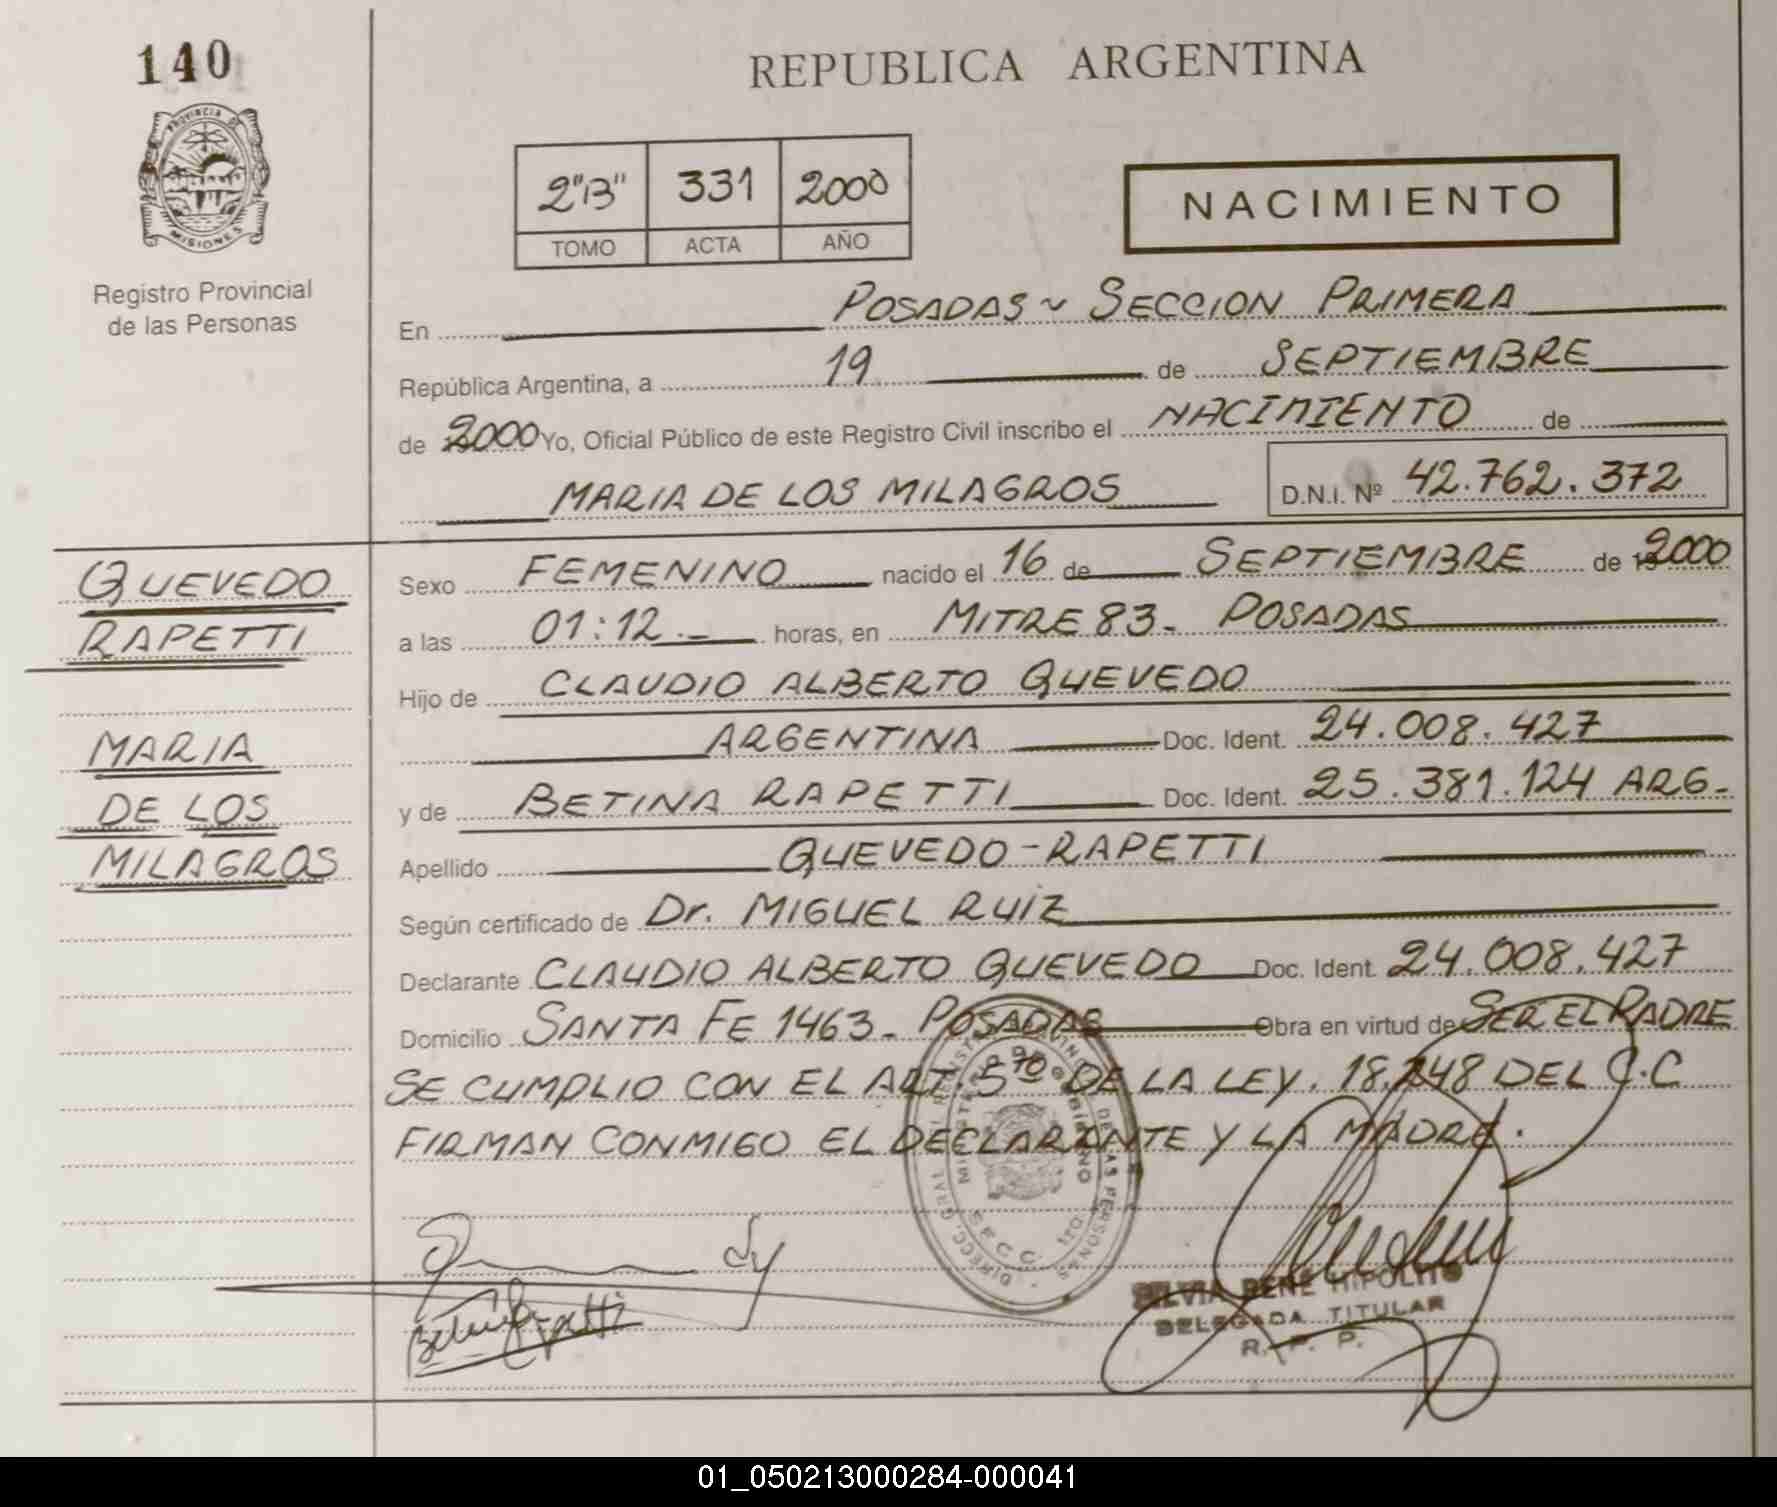 140
REPUBLICA ARGENTINA
PROVINCIA DE
MISIONES
Registro Provincial
de las Personas
2"B" 331 2000
TOMO ACTA AÑO
NACIMIENTO
En POSADAS ~ SECCION PRIMERA
República Argentina, a 19 de SEPTIEMBRE
de 2000 Yo, Oficial Público de este Registro Civil inscribo el NACIMIENTO de
MARIA DE LOS MILAGROS D.N.I. Nº 42.762.372
QUEVEDO
RAPETTI
MARIA
DE LOS
MILAGROS
Sexo FEMENINO nacido el 16 de SEPTIEMBRE de 19 2000
a las 01:12.- horas, en MITRE 83- POSADAS
Hijo de CLAUDIO ALBERTO QUEVEDO
ARGENTINA Doc. Ident. 24.008.427
y de BETINA RAPETTI Doc. Ident. 25.381.124 ARG-
Apellido QUEVEDO-RAPETTI
Según certificado de Dr. MIGUEL RUIZ
Declarante CLAUDIO ALBERTO QUEVEDO Doc. Ident. 24.008.427
Domicilio SANTA FE 1463- POSADAS Obra en virtud de SER EL PADRE
SE CUMPLIO CON EL ART. 5to DE LA LEY. 18.248 DEL C.C
FIRMAN CONMIGO EL DECLARANTE Y LA MADRE.
Betina Rapetti
SILVIA RENE HIPOLITO
DELEGADA TITULAR
R. P. P.
01_050213000284-000041